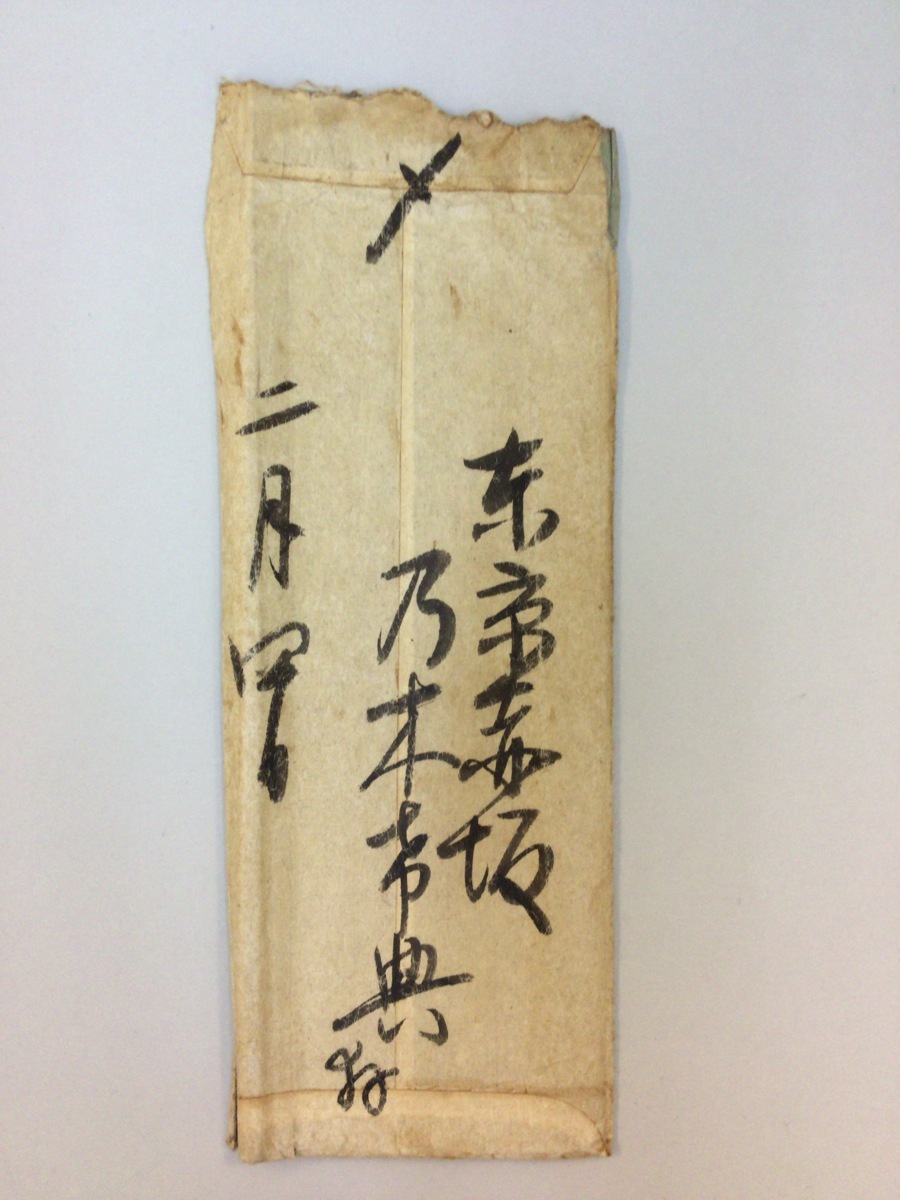 〆
東京赤坂
乃木希典
二月四日